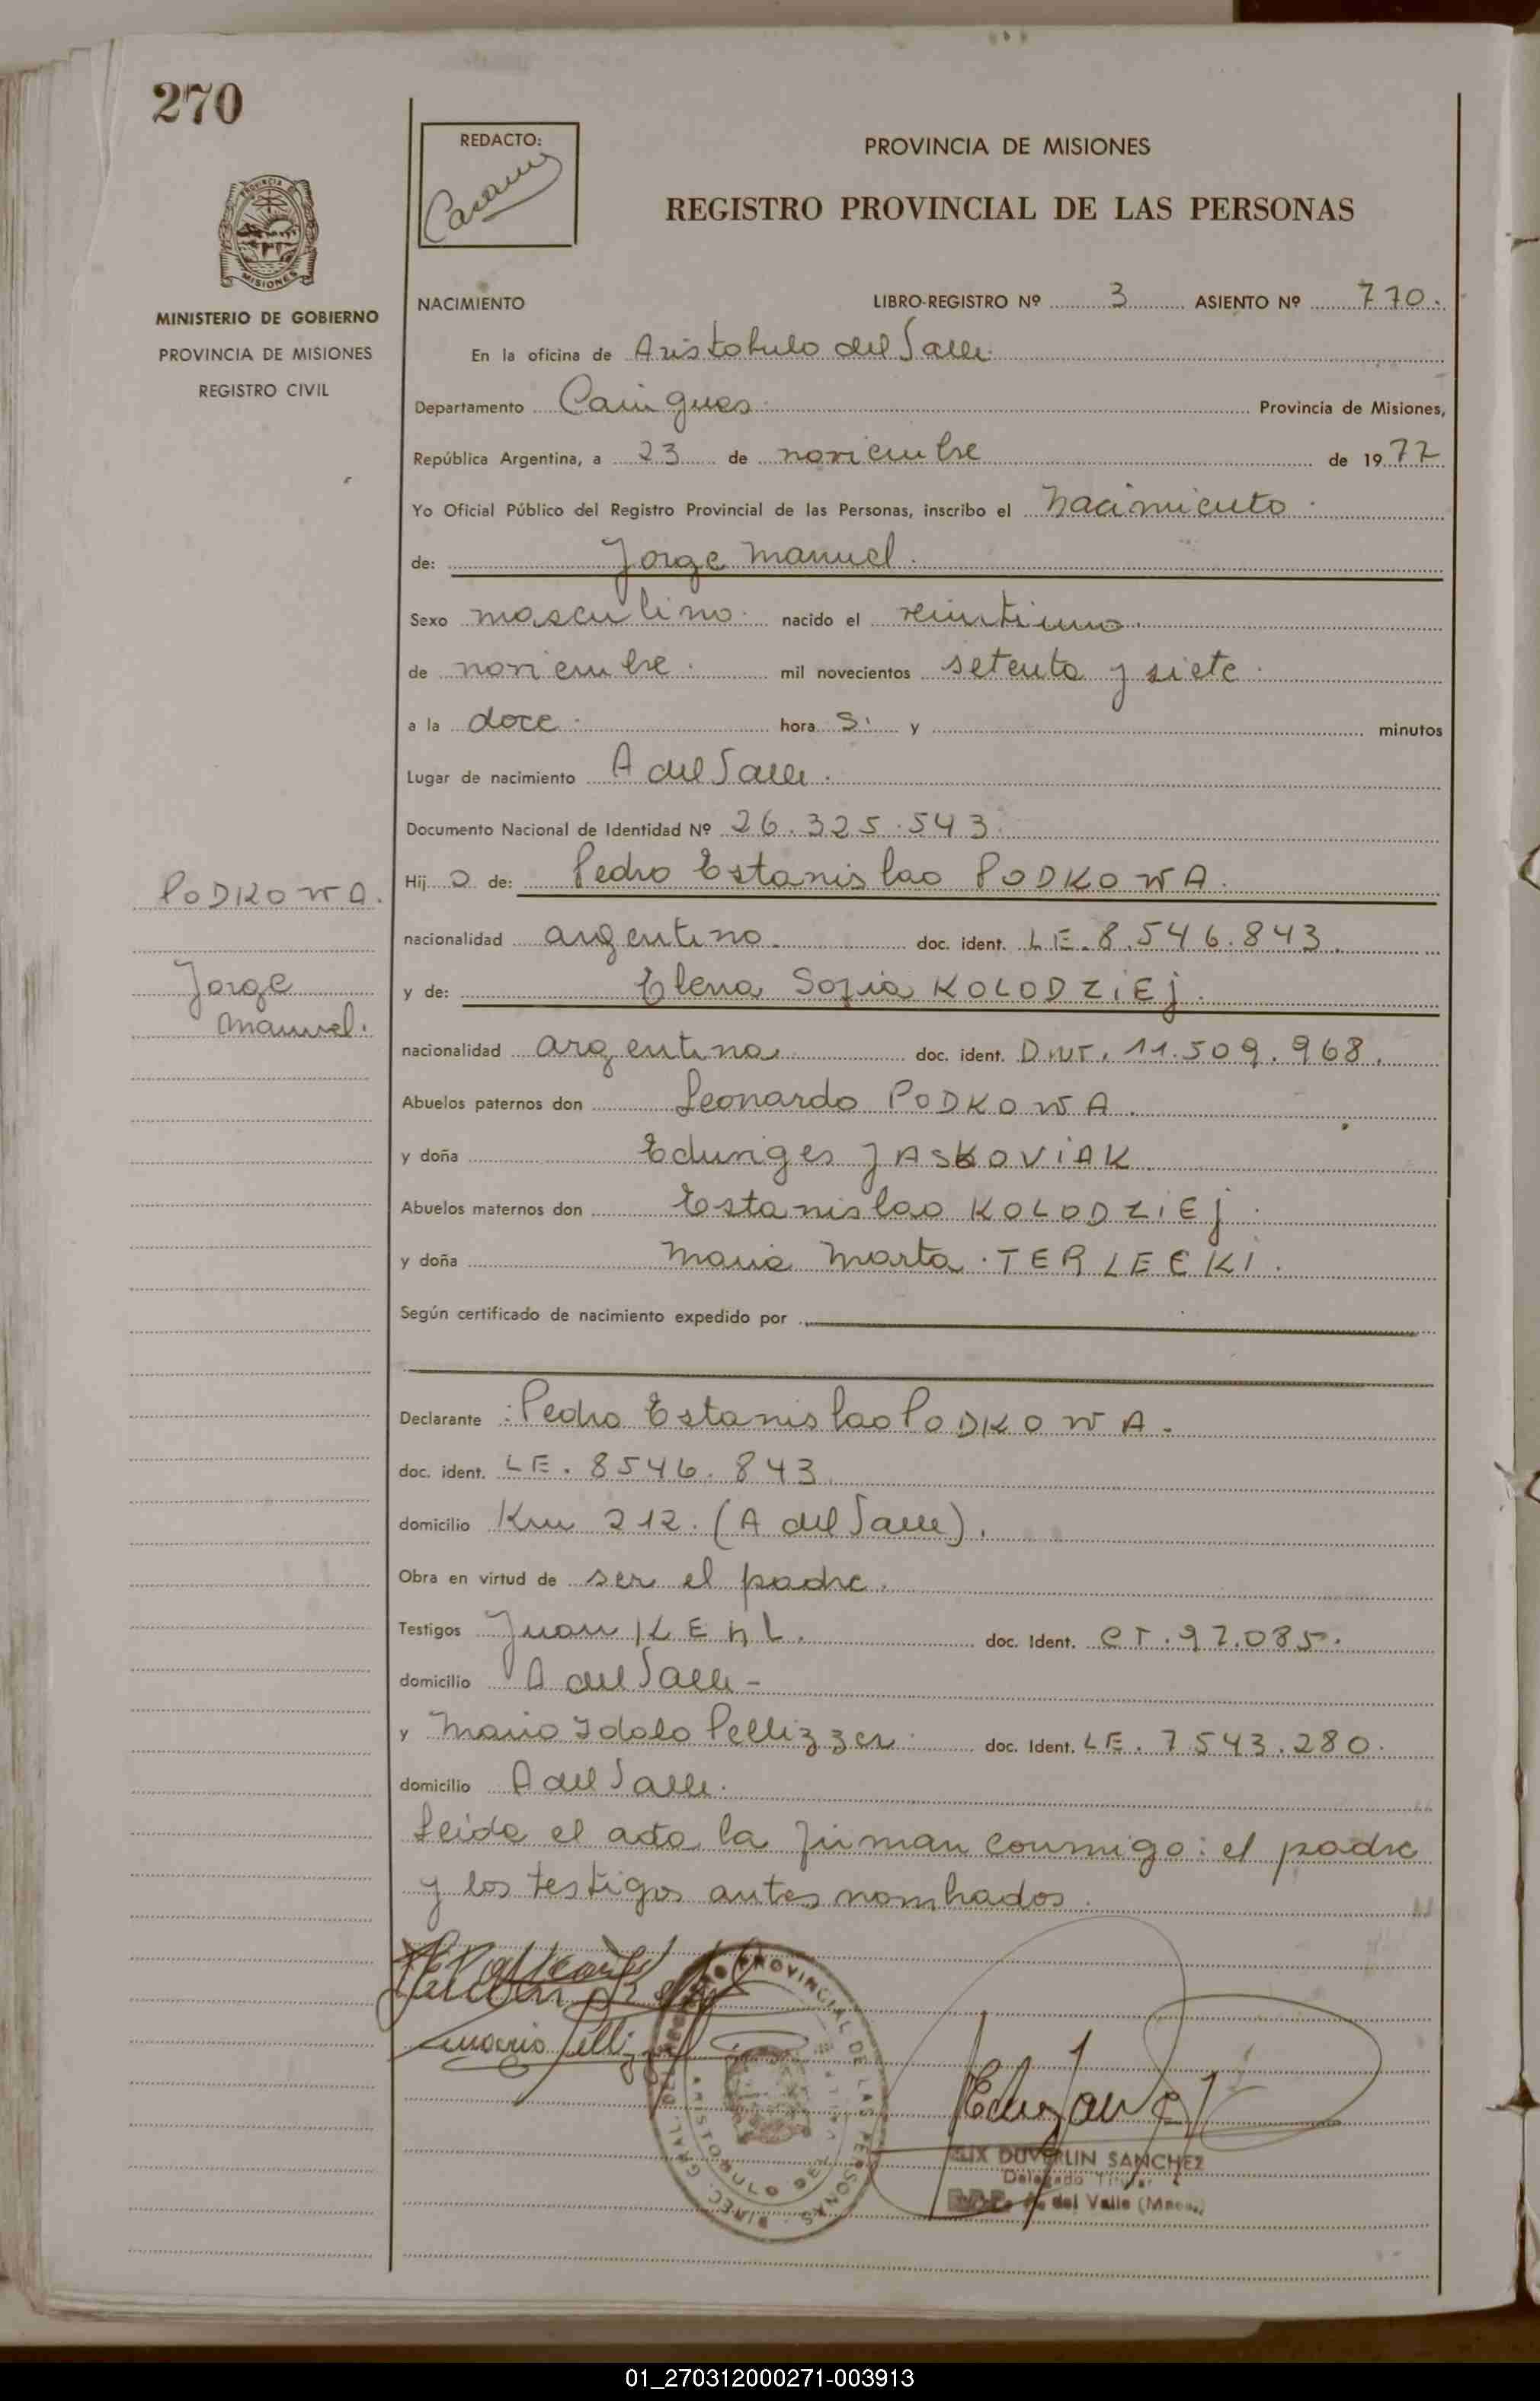 270
REDACTO:
PROVINCIA DE MISIONES
REGISTRO PROVINCIAL DE LAS PERSONAS
MISIONES
MINISTERIO DE GOBIERNO
PROVINCIA DE MISIONES
REGISTRO CIVIL
NACIMIENTO LIBRO-REGISTRO Nº 3 ASIENTO Nº 770.
En la oficina de Aristobulo del Valle
Departamento Cainguas Provincia de Misiones,
República Argentina, a 23 de noviembre de 1977
Yo Oficial Público del Registro Provincial de las Personas, inscribo el Nacimiento
de: Jorge Manuel.
Sexo masculino. nacido el veintiuno.
de noviembre. mil novecientos setenta y siete.
a la doce. hora s. y minutos
Lugar de nacimiento A del Valle.
Documento Nacional de Identidad Nº 26.325.543.
Hij o de: Pedro Estanislao PODKOWA.
nacionalidad argentino. doc. ident. LE. 8.546.843.
y de: Elena Sofia KOLODZIEj.
nacionalidad argentina. doc. ident. DNI. 11.509.968.
Abuelos paternos don Leonardo PODKOWA.
y doña Eduviges JASKOVIAK.
Abuelos maternos don Estanislao KOLODZIEj.
y doña Maria Marta. TERLECKI.
Según certificado de nacimiento expedido por
Declarante : Pedro Estanislao PODKOWA.
doc. ident. LE. 8546.843.
domicilio Km 212. (A del Valle).
Obra en virtud de ser el padre.
Testigos Juan KEHL. doc. Ident. CI. 97.085.
domicilio A del Valle -
y Mario Idolo Pellizzer. doc. Ident. LE. 7543.280.
domicilio A del Valle.
Leida el acta la firman conmigo: el padre
y los testigos antes nombrados.
PODKOWA.
Jorge
Manuel.
REGISTRO PROVINCIAL DE LAS PERSONAS
DIREC. GRAL.
ARISTOBULO
DUVERLIN SANCHEZ
Delegado Titular
A. del Valle (Mnes.)
01_270312000271-003913